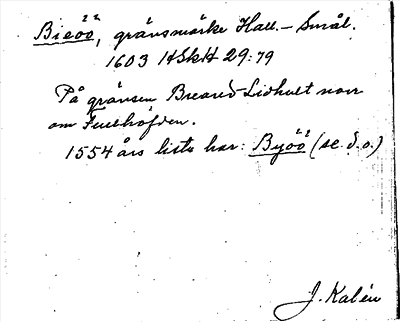 Bieöö, gränsmärke Hall. – Smål.
1603 HSkH 29:79
På gränsen Breared-Lidhult norr
om Fullhöfden.
1554 års lista har: Byöö (se d.o.)
J. Kalén